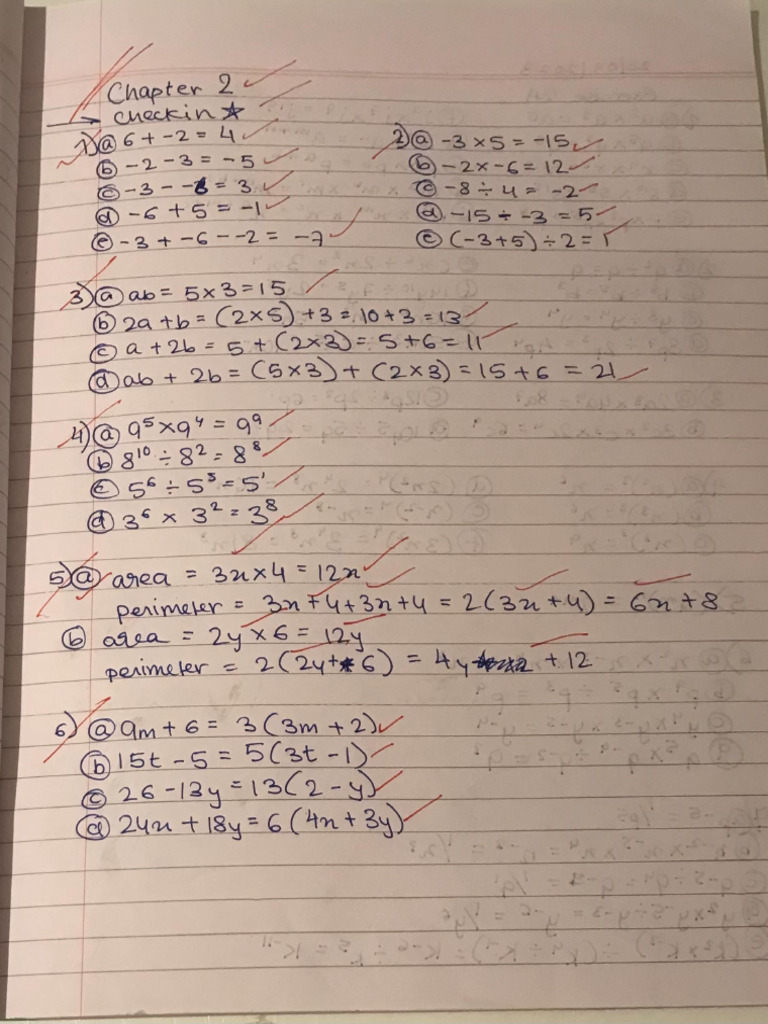 Chapter 2
→ checkin ☆
1) ⓐ 6 + -2 = 4
ⓑ -2 - 3 = -5
ⓒ -3 - -6 = 3
ⓓ -6 + 5 = -1
ⓔ -3 + -6 - -2 = -7
2) ⓐ -3 × 5 = -15
ⓑ -2 × -6 = 12
ⓒ -8 ÷ 4 = -2
ⓓ -15 ÷ -3 = 5
ⓔ (-3+5) ÷ 2 = 1
3) ⓐ ab = 5 × 3 = 15
ⓑ 2a + b = (2×5) + 3 = 10 + 3 = 13
ⓒ a + 2b = 5 + (2×3) = 5 + 6 = 11
ⓓ ab + 2b = (5×3) + (2×3) = 15 + 6 = 21
4) ⓐ 9⁵ × 9⁴ = 9⁹
ⓑ 8¹⁰ ÷ 8² = 8⁸
ⓒ 5⁶ ÷ 5⁵ = 5¹
ⓓ 3⁶ × 3² = 3⁸
5) ⓐ area = 3x × 4 = 12x
perimeter = 3x + 4 + 3x + 4 = 2(3x + 4) = 6x + 8
ⓑ area = 2y × 6 = 12y
perimeter = 2(2y + 6) = 4y + 12
6) ⓐ 9m + 6 = 3(3m + 2)
ⓑ 15t - 5 = 5(3t - 1)
ⓒ 26 - 13y = 13(2 - y)
ⓓ 24x + 18y = 6(4x + 3y)